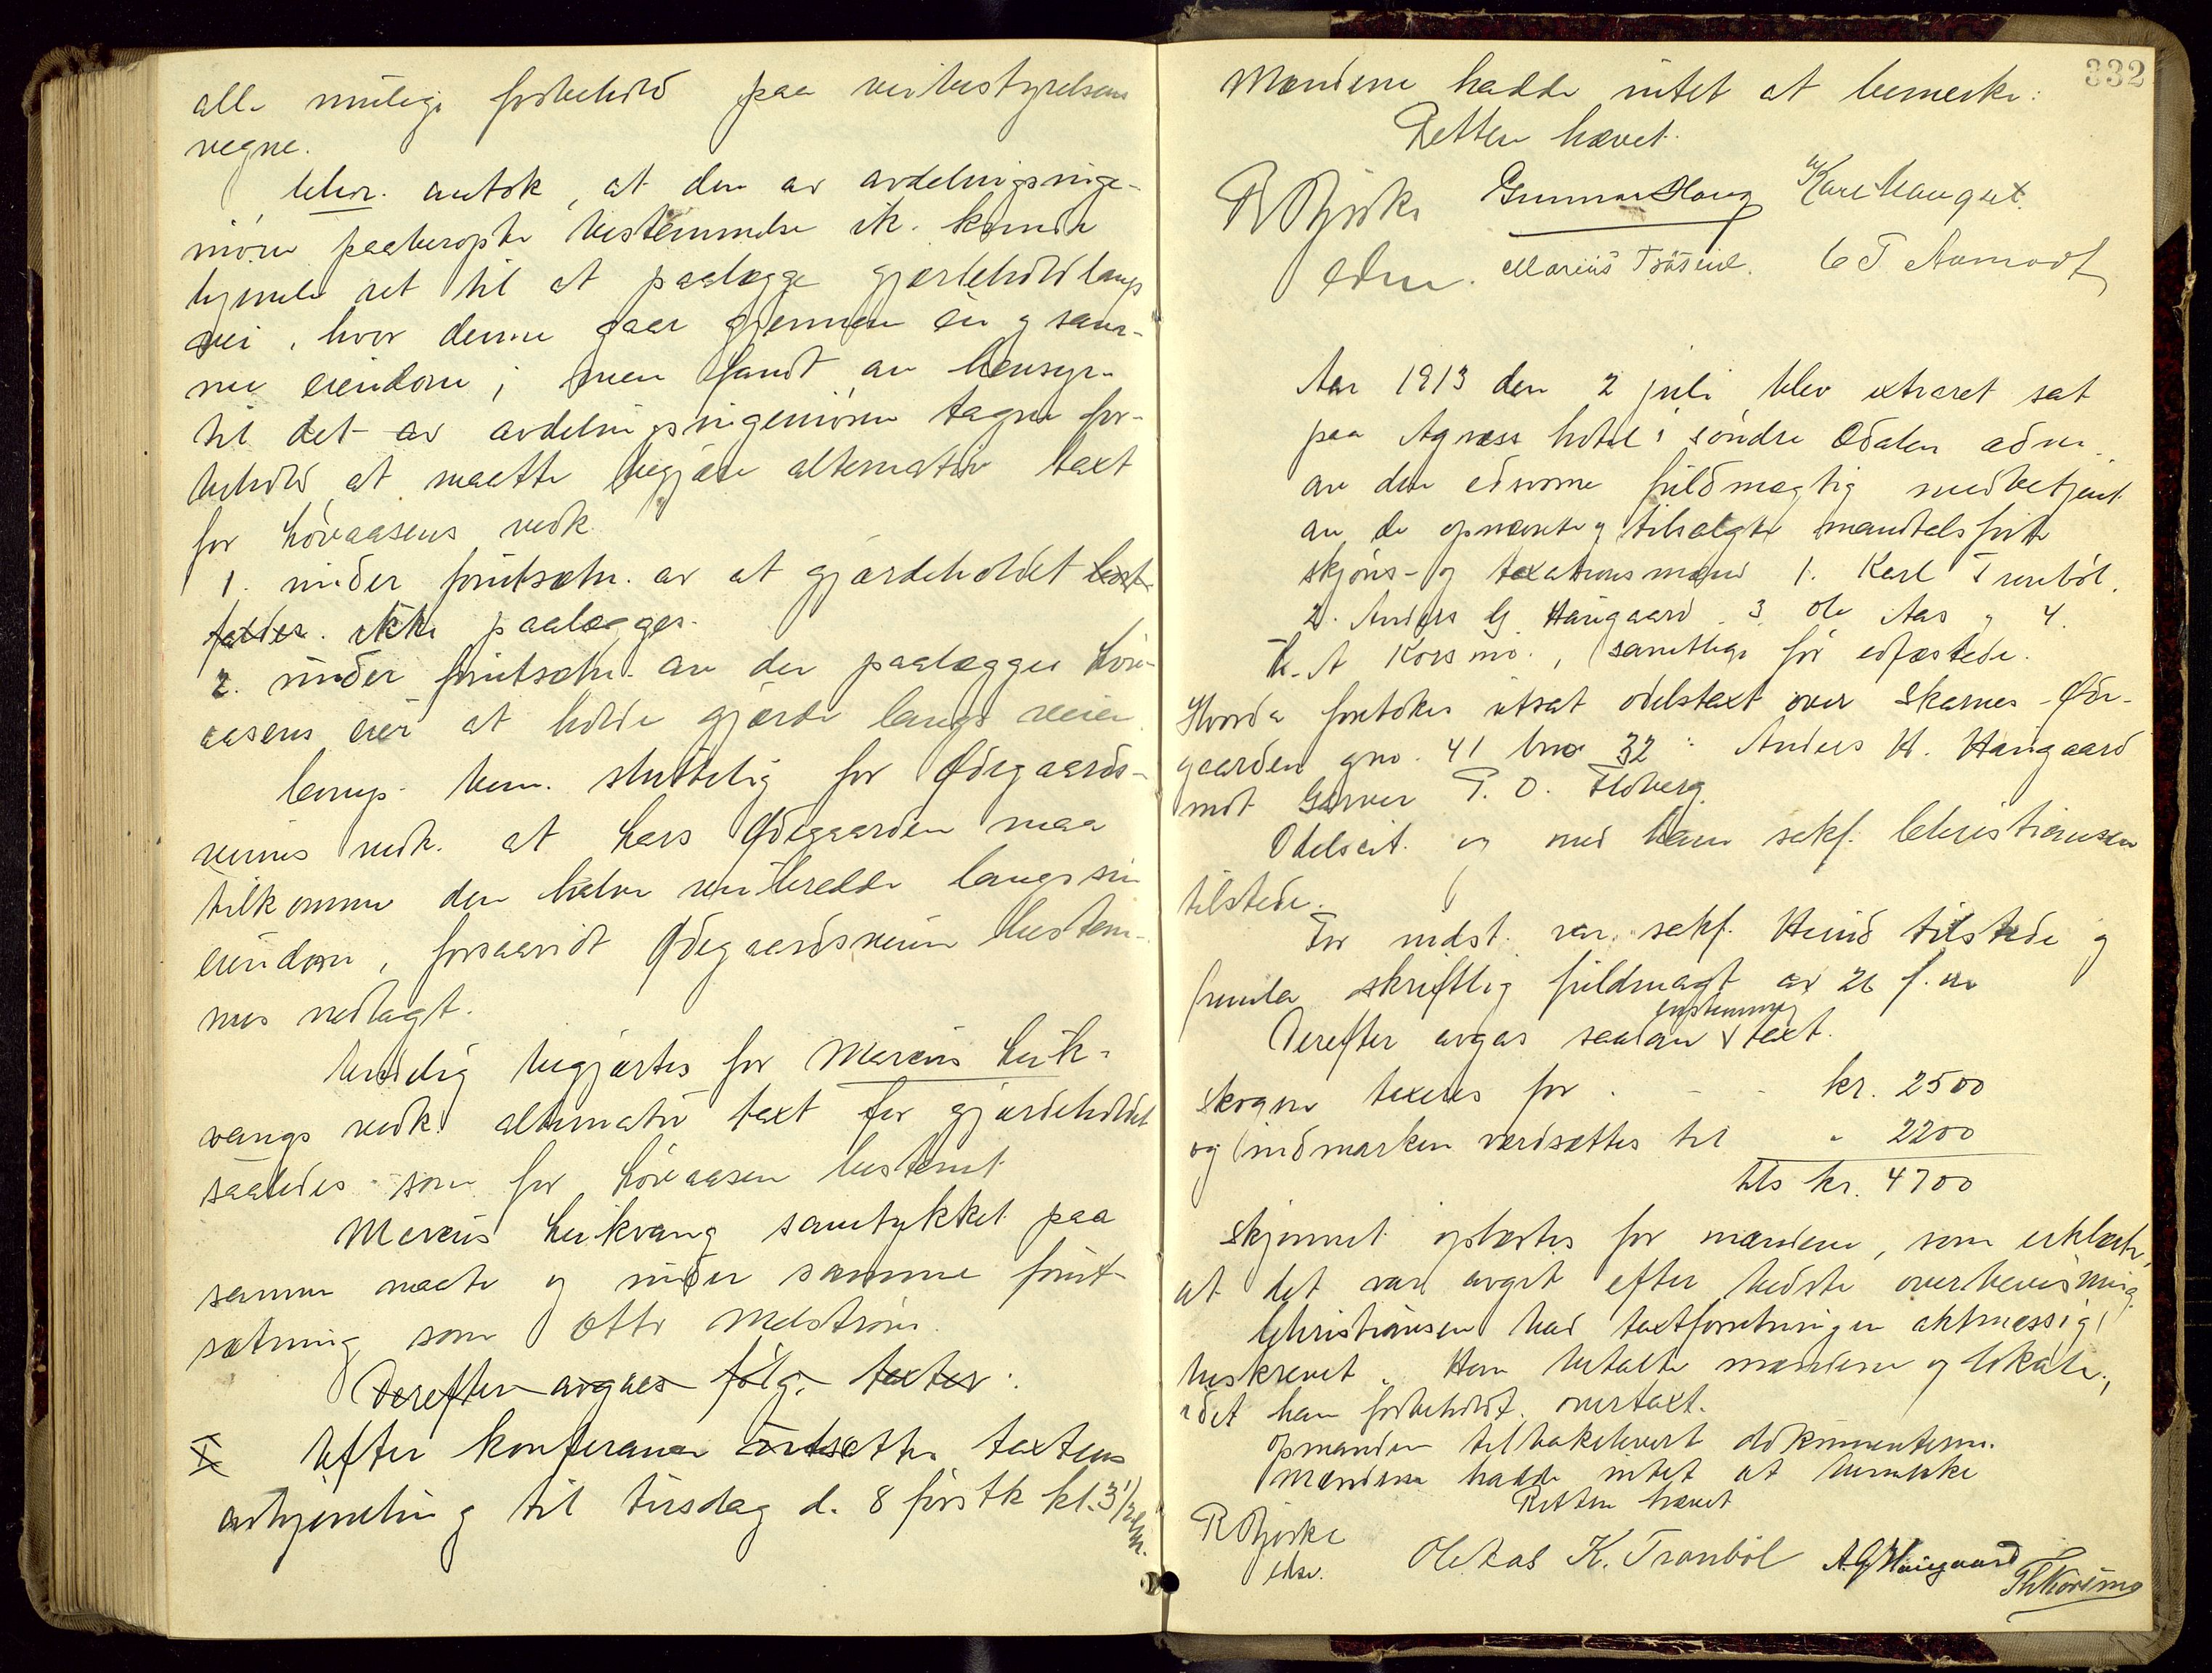 alle mulige forbehold paa veibestyrelsens
vegne.
antok, at den av avdelingsinge-
niøren paaberopte bestemmelse ik. kunde
hjemle ret til at paalægge gjærdehold langs
vei, hvor denne gaar gjennem en og sam-
me eiendom; men fandt av hensyn
til det av avdelingsingeniøren tagne for-
behold at maatte begjære alternativ taxt
for Løvaasens vedk.
1. under forutsætn. av at gjærdeholdet
ikke paalægges.
2. under forutsætn. av der paalægges Løv-
aasens eier at holde gjærde langs veien
bem. sluttelig for Ødegaards-
veiens vedk. at Lars Ødegaarden maa
tilkomme den halve veibredde langs sin
eiendom, forsaavidt Ødegaardsveien bestem-
mes nedlagt.
Endelig begjærtes for Marcus Leik-
vangs vedk. alternativ taxt for gjærdeholdet
saaledes som for Løvaasen bestemt
Marcus Leikvang samtykket paa
samme maate og under samme forut-
sætning som Otto Melstrøm.
Derefter avgaes følg. taxter:
Efter konferance utsættes taxtens
avhjemling til tirsdag d. 8 førstk kl. 3 1/2 em.
332
Mændene hadde intet at bemerke:
Retten hævet.
R Bjørke Gunnar Haug Karl Haugset
edsv. Marius C T Aamodt
Aar 1913 den 2 juli blev extraret sat
paa Agnæss hotel i søndre Odalen adm.
av den edsvorne fuldmægtig medbetjent
av de opnævnte og tilsagte mandtalsførte
skjøns- og taxationsmænd 1. Karl Tronbøl,
2. Anders G Haugaard 3. Ole Aas og 4.
Th. A Korsmo, samtlige før edfæstede.
Hvorda foretokes utsat odelstaxt over Skarnes - Øde-
gaarden gno. 41 bno 32: Anders H. Haugaard
mot Garver P. O. Floberg.
Odelscit. og med ham sakf. Christiansen
tilstede.
For indst. var sakf. Hund tilstede og
fremla skriftlig fuldmagt av 26 f. m
enstemmig
Derefter avgas saadan taxt.
Skogen taxeres for . - - kr. 2500
og indmarken værdsættes til " 2200
tils kr. 4700
Skjønnet oplæstes for mændene, som erklærte,
at det var avgit efter bedste overbevisning.
Christiansen bad taxtforretningen aktmæssig
beskrevet. Han betalte mændene og lokale,
idet han forbeholdt overtaxt.
Opmanden tilbakelevert dokumenterne.
Mændene hadde intet at bemerke
Retten hævet
R Bjørke
edsv.
Ole Aas K. Tronbøl A. G Haugaard
Th Korsmo